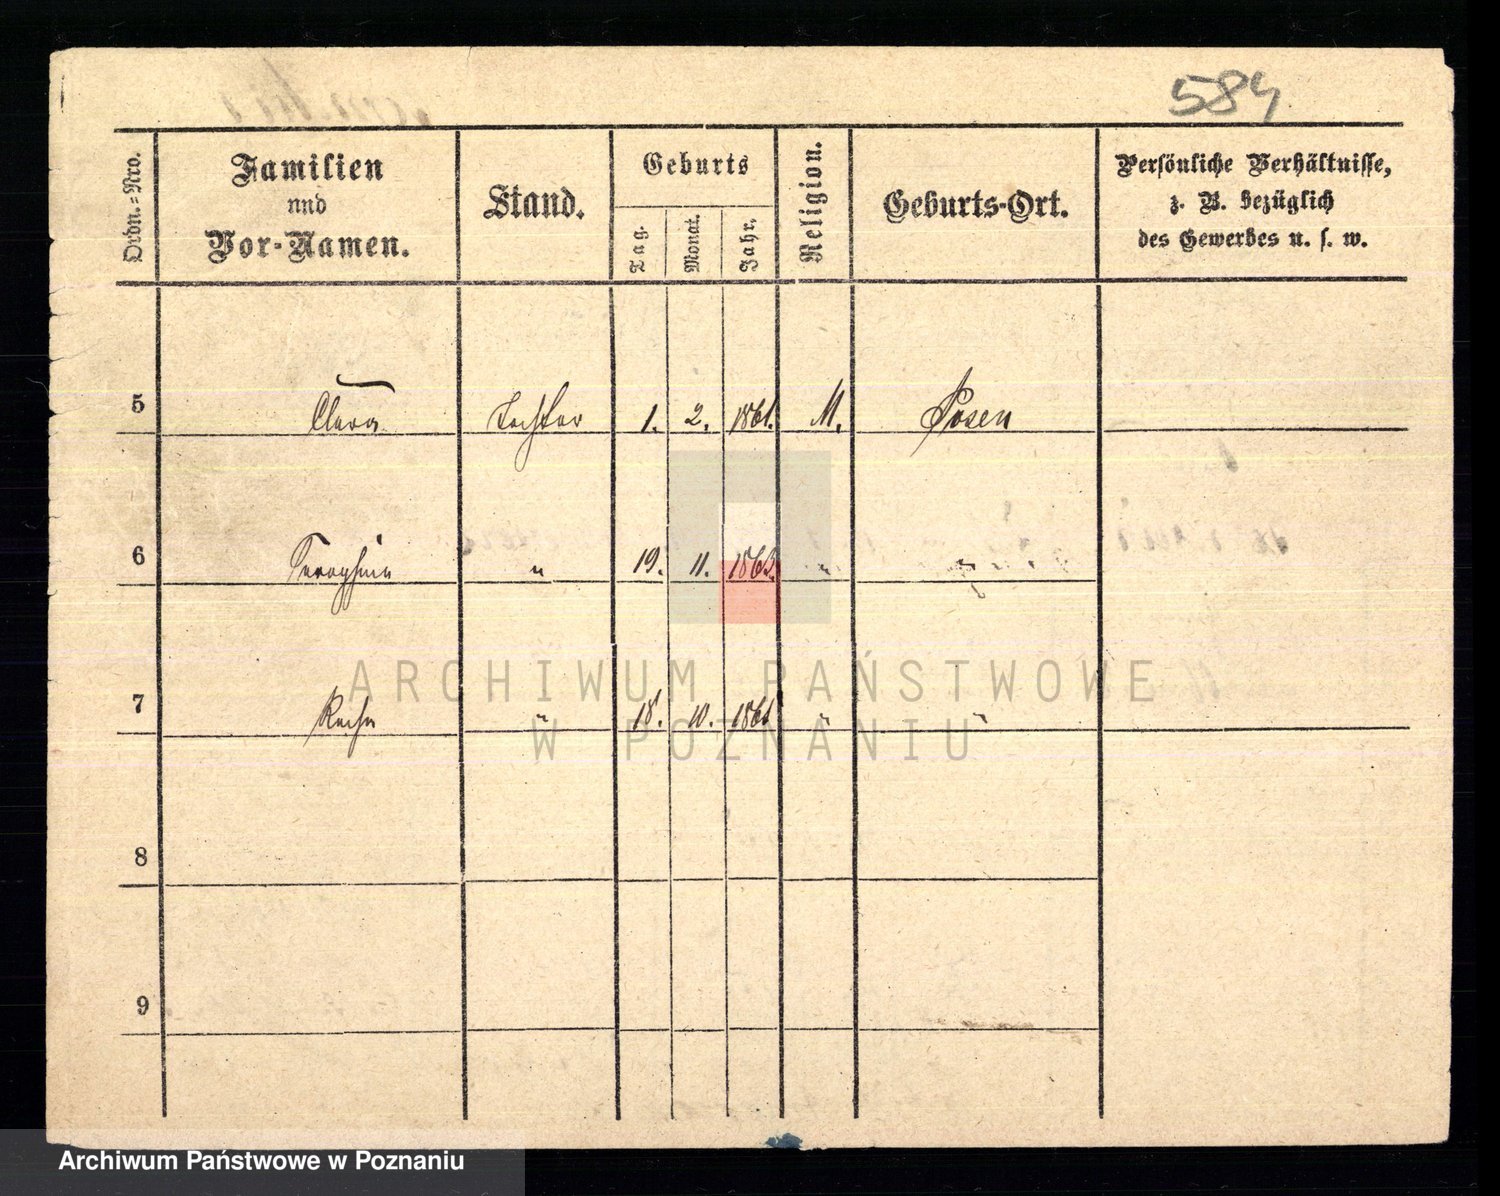 584
Ordn.=Nro.
Familien
und
Vor-Namen.
Stand.
Geburts
Tag.
Monat.
Jahr.
Religion.
Geburts-Ort.
Persönliche Verhältnisse,
z. B. bezüglich
des Gewerbes u. s. w.
5 Clara Tochter 1. 2. 1861. M. Posen
6 " 19. 11. " "
7 " 18. 10. " "
8
9
ARCHIWUM PAŃSTWOWE
W POZNANIU
Archiwum Państwowe w Poznaniu